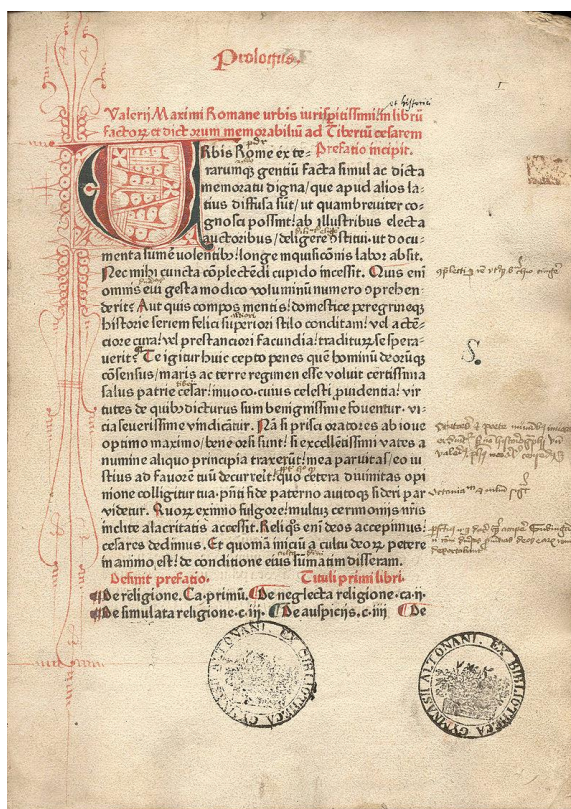 Prologus.
Valerij Maximi Romane urbis iurisꝑitissimi: in librū
factoꝝ et dictorum memorabiliū ad Tiberiū cesarem
Prefatio incipit.
URbis Rome exte-
rarumqꝫ gentiū facta simul ac dicta
memoratu digna/ que apud alios la-
tius diffusa sūt/ ut quam breuiter co-
gnosci possint: ab illustribus electa
auctoribus/ deligere ꝯstitui: ut docu-
menta sumere uolentibꝰ: longe inquisicōnis labor absit.
Nec mihi cuncta cōplectēdi cupido incessit. Quis enī
omnis eui gesta modico voluminū numero ꝯprehen-
derit? Aut quis compos mentis: domestice peregrineqꝫ
historie seriem felici superiorꝝ stilo conditam: vel actē-
ciore cura: vel prestanciori facundia: traditurꝝ se spera-
uerit? Te igitur huic cepto penes quē hominū deorūqꝫ
cōsensus/ maris ac terre regimen esse voluit certissima
salus patrie cesar: inuoco. cuius celesti ꝓuidentia: vir
tutes de quibꝰ dicturus sum benignissime fouentur. vi-
cia seuerissime vindicātur. Nā si prisci oratores ab ioue
optimo maximo/ bene orsi sunt: si excellētissimi vates a
numine aliquo principia traxerūt: mea paruitas/ eo iu
stius ad fauorē tuū decurrerit: quo cetera diuinitas opi
nione colligitur tua. pn̄ti fide paterno auitoqꝫ sideri par
videtur. Quoꝝ eximio fulgore: multū cerimonijs nr̄is
inclite alacritatis accessit. Reliqs enī deos accepimus:
cesares dedimus. Et quoniā iniciū a cultu deoꝝ petere
in animo est: de conditione eius sūmatim disseram.
Definit prefatio. Tituli primi libri.
De religione. Ca. primū. De neglecta religione. ca. ij.
De simulata religione. c. iij. De auspicijs. c. iiij De
EX BIBLIOTHECA GYMNASII ALTONANI.
EX BIBLIOTHECA GYMNASII ALTONANI.